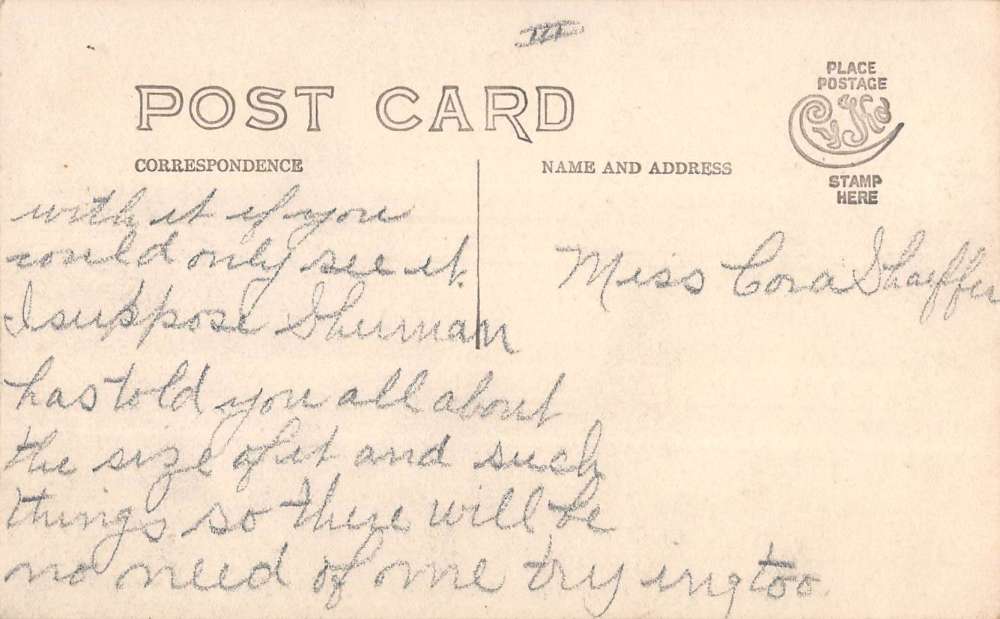 III
POST CARD
PLACE
POSTAGE
CYKO
STAMP
HERE
CORRESPONDENCE
NAME AND ADDRESS
with it if you
could only see it.
I suppose Sherman
has told you all about
the size of it and such
things so there will be
no need of me trying too.
Miss Cora Shaeffer